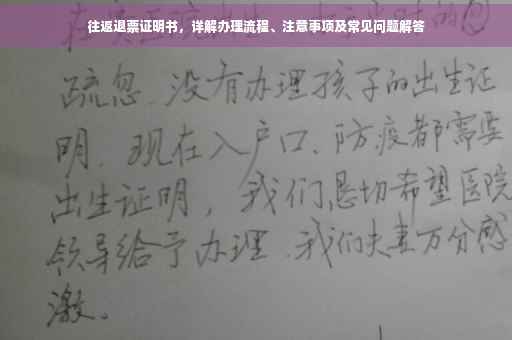 往返退票证明书，详解办理流程、注意事项及常见问题解答
疏忽.没有办理孩子的出生证
明.现在入户口、防疫都需要
出生证明，我们恳切希望医院
领导给予办理.我们夫妻万分感
激。